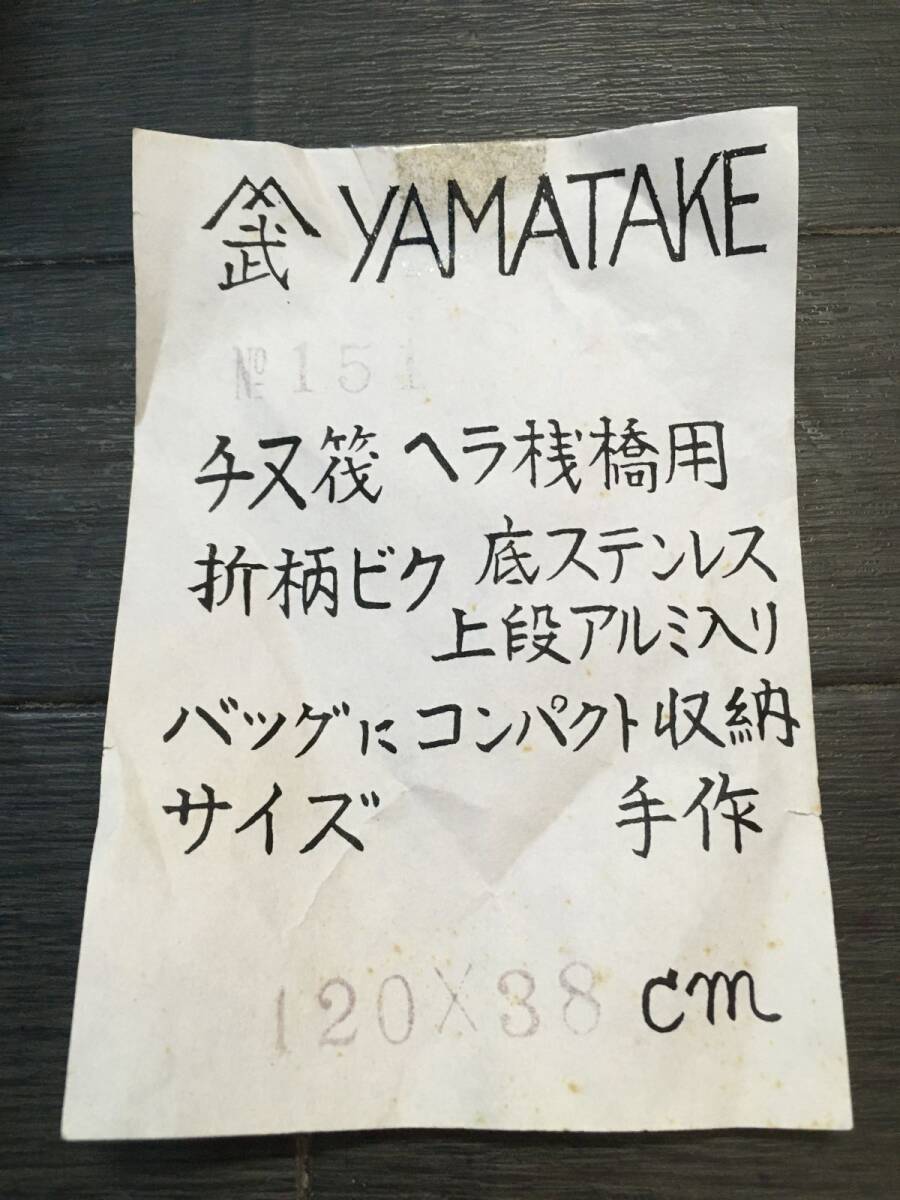 武 YAMATAKE
№151
チヌ筏 ヘラ桟橋用
折柄ビク 底ステンレス
上段アルミ入リ
バッグにコンパクト収納
サイズ 手作
120X38 cm